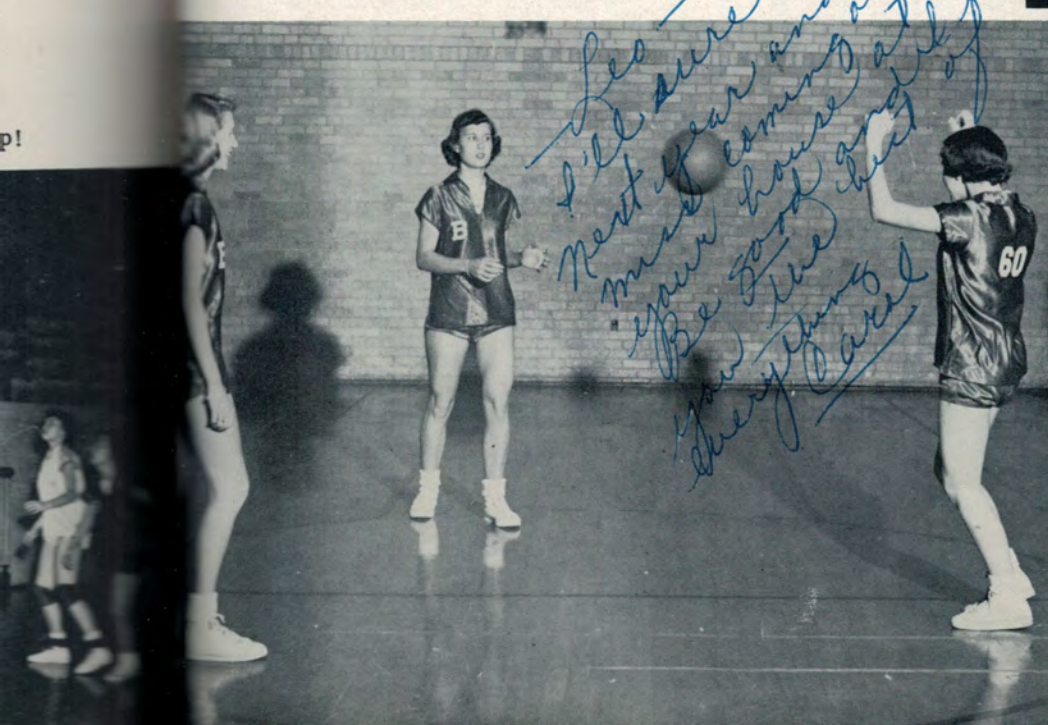 p!
Leo –
I'll sure
next year and
miss coming
your house at
Be good and
You the best of
everything
Carol
B
60